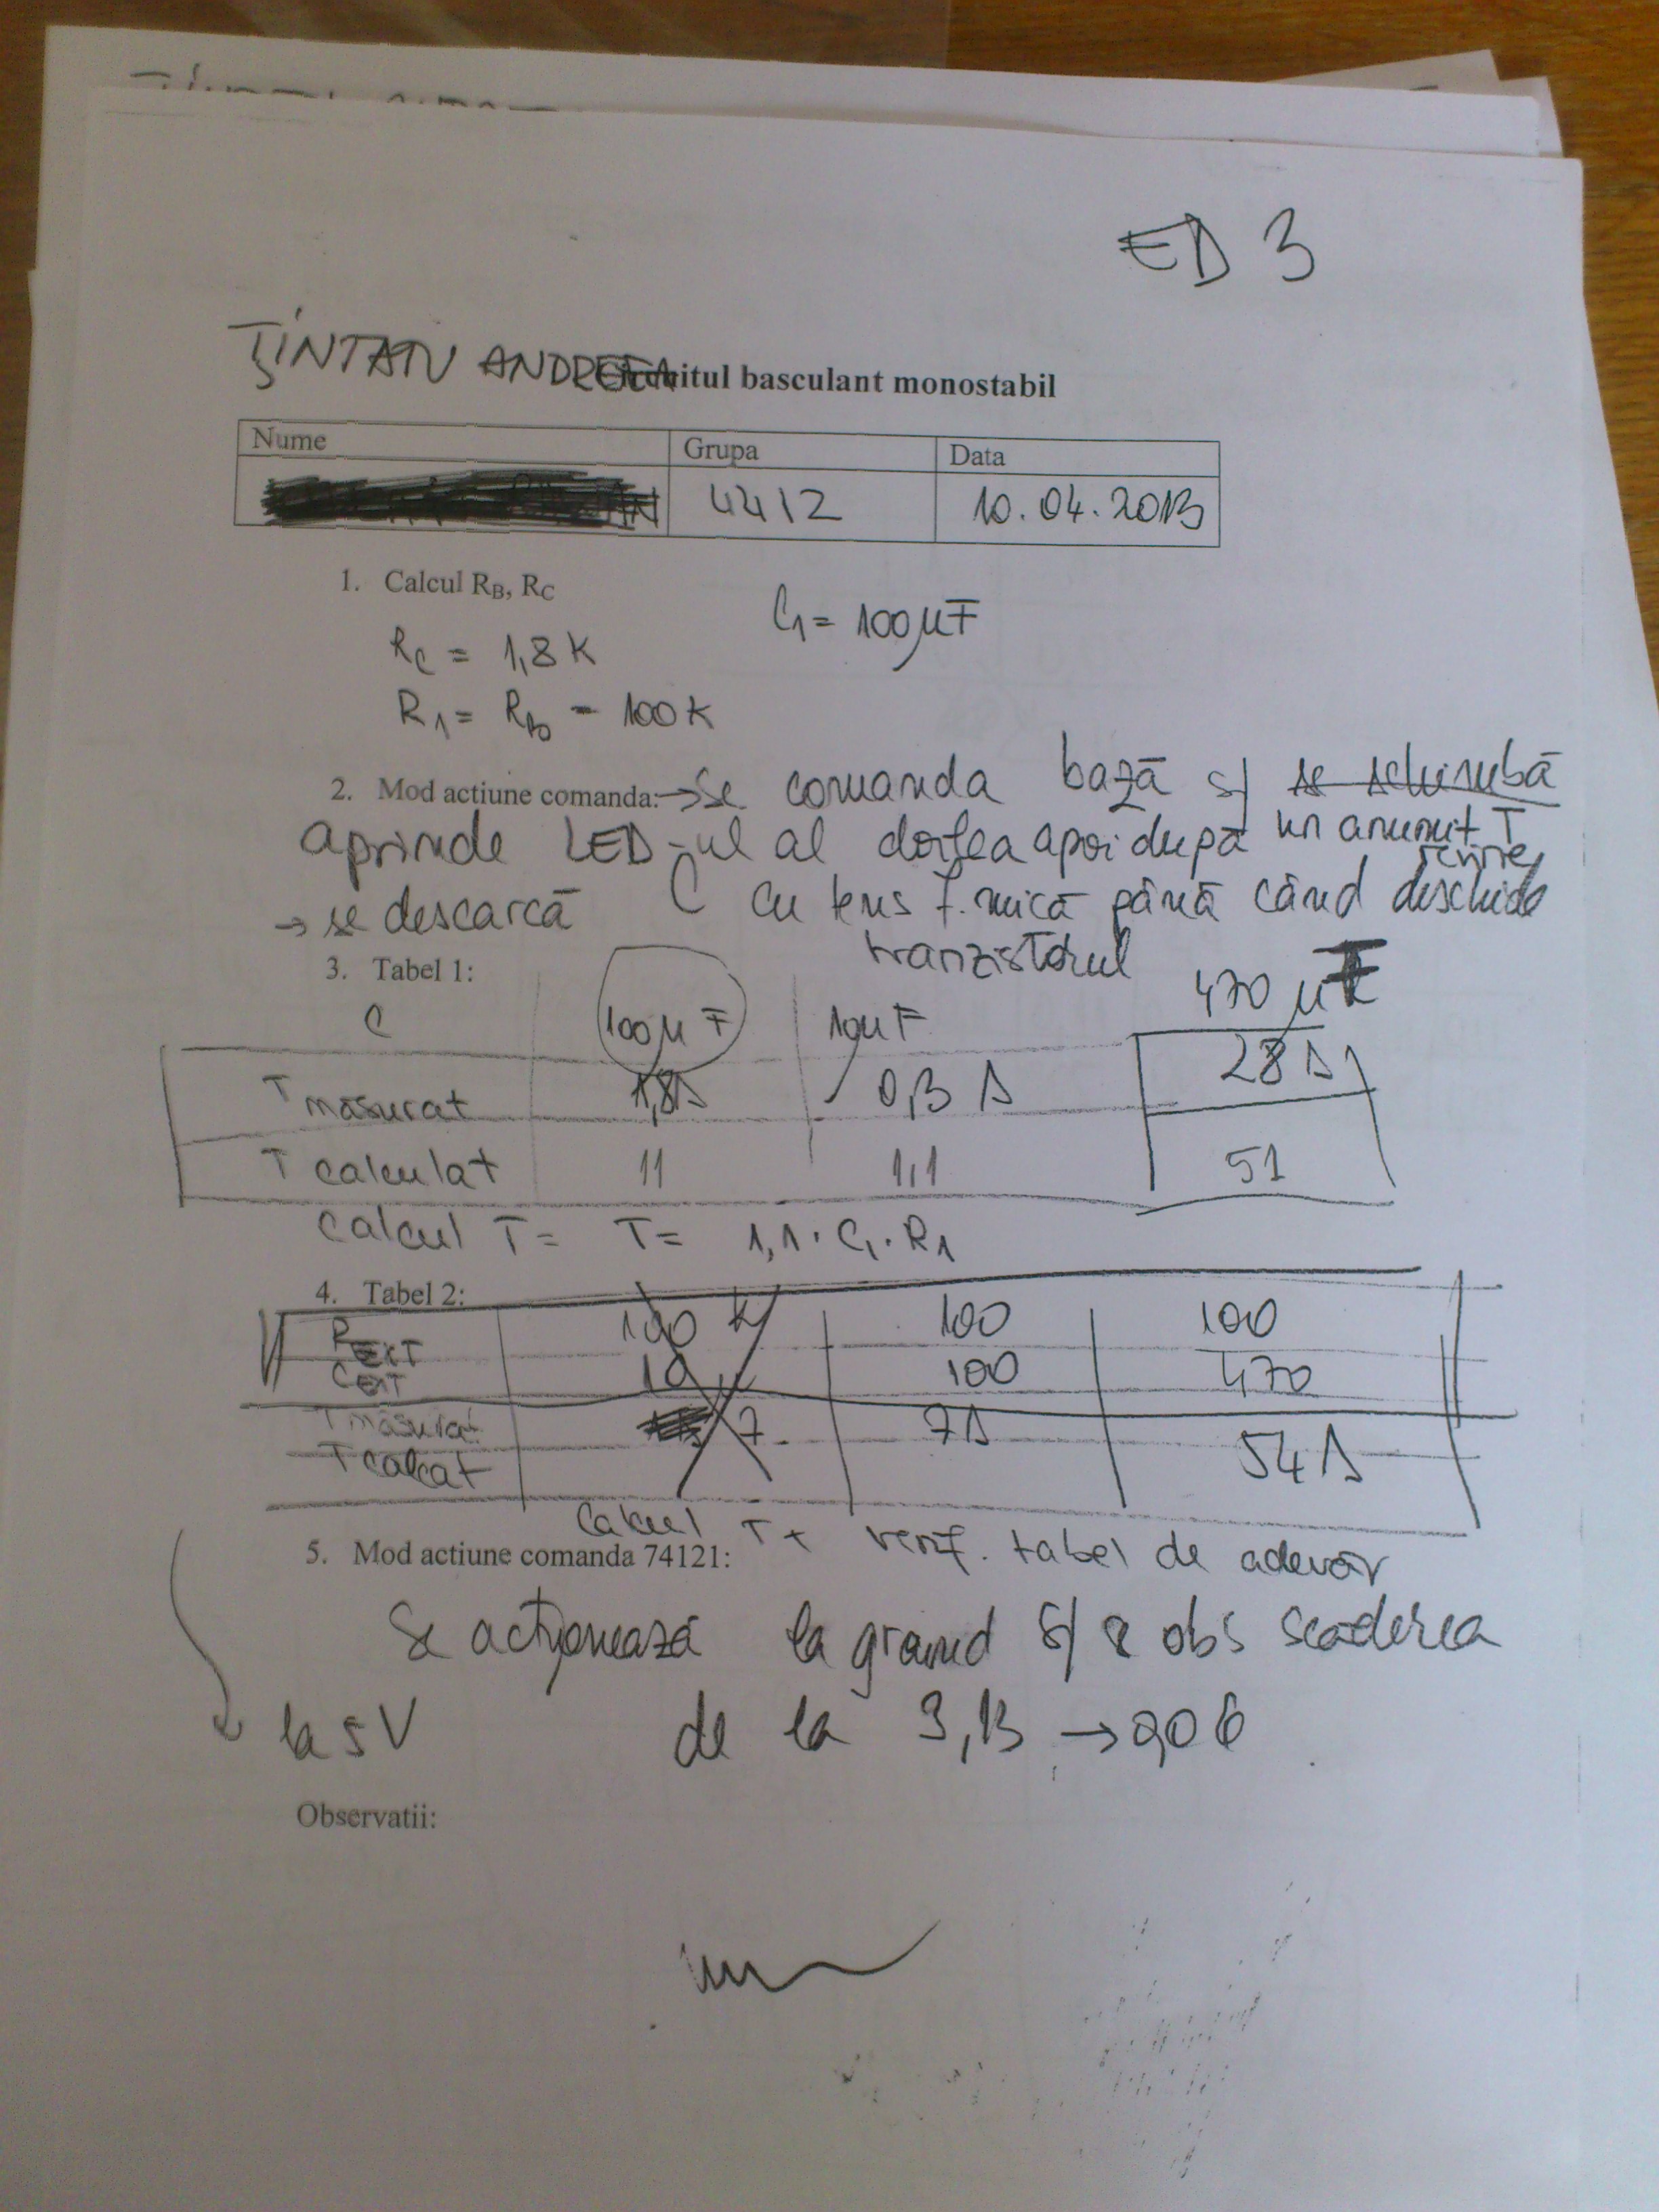 ED 3
ŢINTATU ANDREEA
itul basculant monostabil
Nume Grupa Data
4412 10.04.2013
1. Calcul RB, RC
C1 = 100µF
RC = 1,8 K
R1 = RB = 100 K
2. Mod actiune comanda: → Se comanda bază și se schimbă
aprinde LED-ul al doilea apoi după un anumit T
revine
→ se descarcă C cu tens f. mică până când deschide
tranzistorul
3. Tabel 1:
C 100µF 10µF 470 µF
T măsurat 1,8s 0,3 s 28 s
T calculat 11 1,1 51
calcul T = T = 1,1 · C1 · R1
4. Tabel 2:
REXT 100 K 100 100
CEXT 10 100 470
T măsurat 7 7s 54 s
T calcat
Calcul T + verif. tabel de adevăr
5. Mod actiune comanda 74121:
Se acționează la ground și se obs scaderea
la 5 V de la 3,13 → 0,06
Observatii: